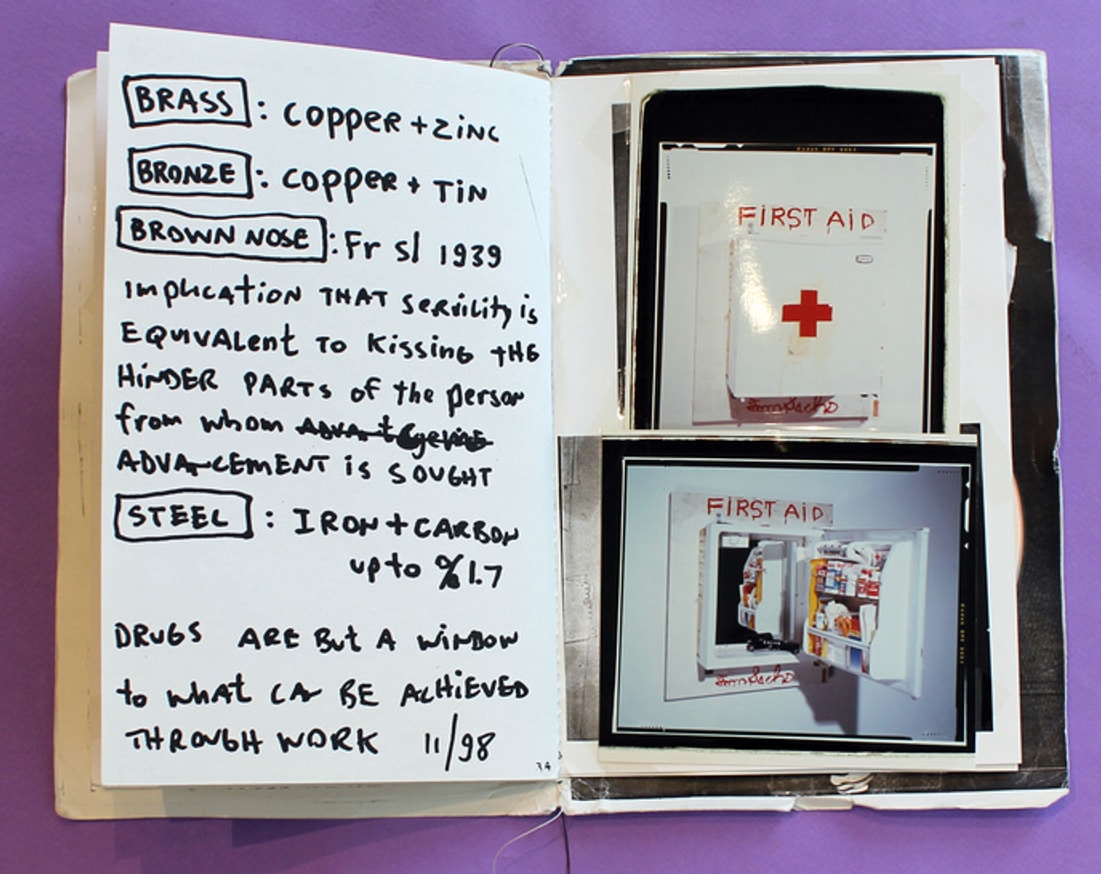 BRASS : COPPER + ZINC
BRONZE : COPPER + TIN
BROWN NOSE : Fr Sl 1939
IMPLICATION THAT SERVILITY is
EQUIVALENT TO KISSING THE
HINDER PARTS of the person
from whom
ADVANCEMENT is SOUGHT
STEEL : IRON + CARBON
up to %1.7
DRUGS ARE BUT A WINDOW
to WHAT CAN BE ACHIEVED
THROUGH WORK 11/98
34
FIRST AID
Tom Sachs
FIRST AID
Tom Sachs